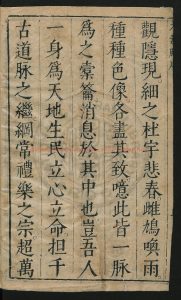 觀隱現細之杜宇悲春雌鳩喚雨
種種色像各盡其致噫此皆一脉
為之橐籥消息於其中也豈吾人
一身為天地生民立心立命担千
古道脉之繼綱常禮樂之宗超萬